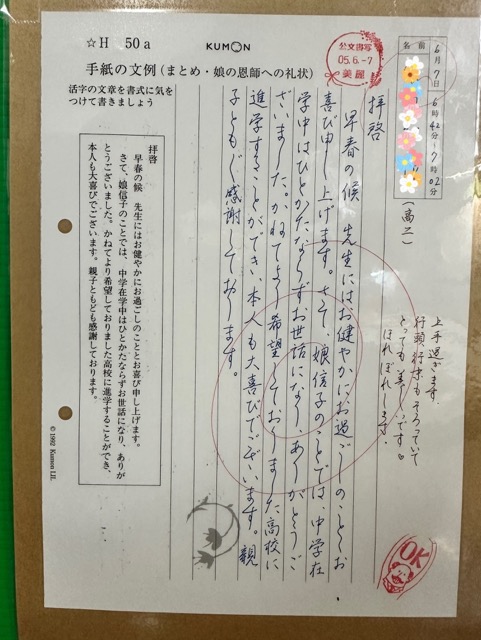 ☆H 50a
KUMON
手紙の文例(まとめ・娘の恩師への礼状)
活字の文章を書式に気を
つけて書きましょう
公文書写
05.6.-7
美麗
名前
6月7日 6時42分~7時02分
(高二)
拝啓
早春の候 先生にはお健やかにお過ごしのこととお
喜び申し上げます。さて、娘信子のことでは、中学在
学中はひとかたならずお世話になり、ありがとうご
ざいました。かねてより希望しておりました高校に
進学することができ、本人も大喜びでございます。親
子ともども感謝しております。
上手過ぎます。
行頭行末もそろっていて
とっても美しいです
ほれぼれします。
OK
拝啓
早春の候 先生にはお健やかにお過ごしのこととお喜び申し上げます。
さて、娘信子のことでは、中学在学中はひとかたならずお世話になり、ありが
とうございました。かねてより希望しておりました高校に進学することができ、
本人も大喜びでございます。親子ともども感謝しております。
© 1992 Kumon I.E.